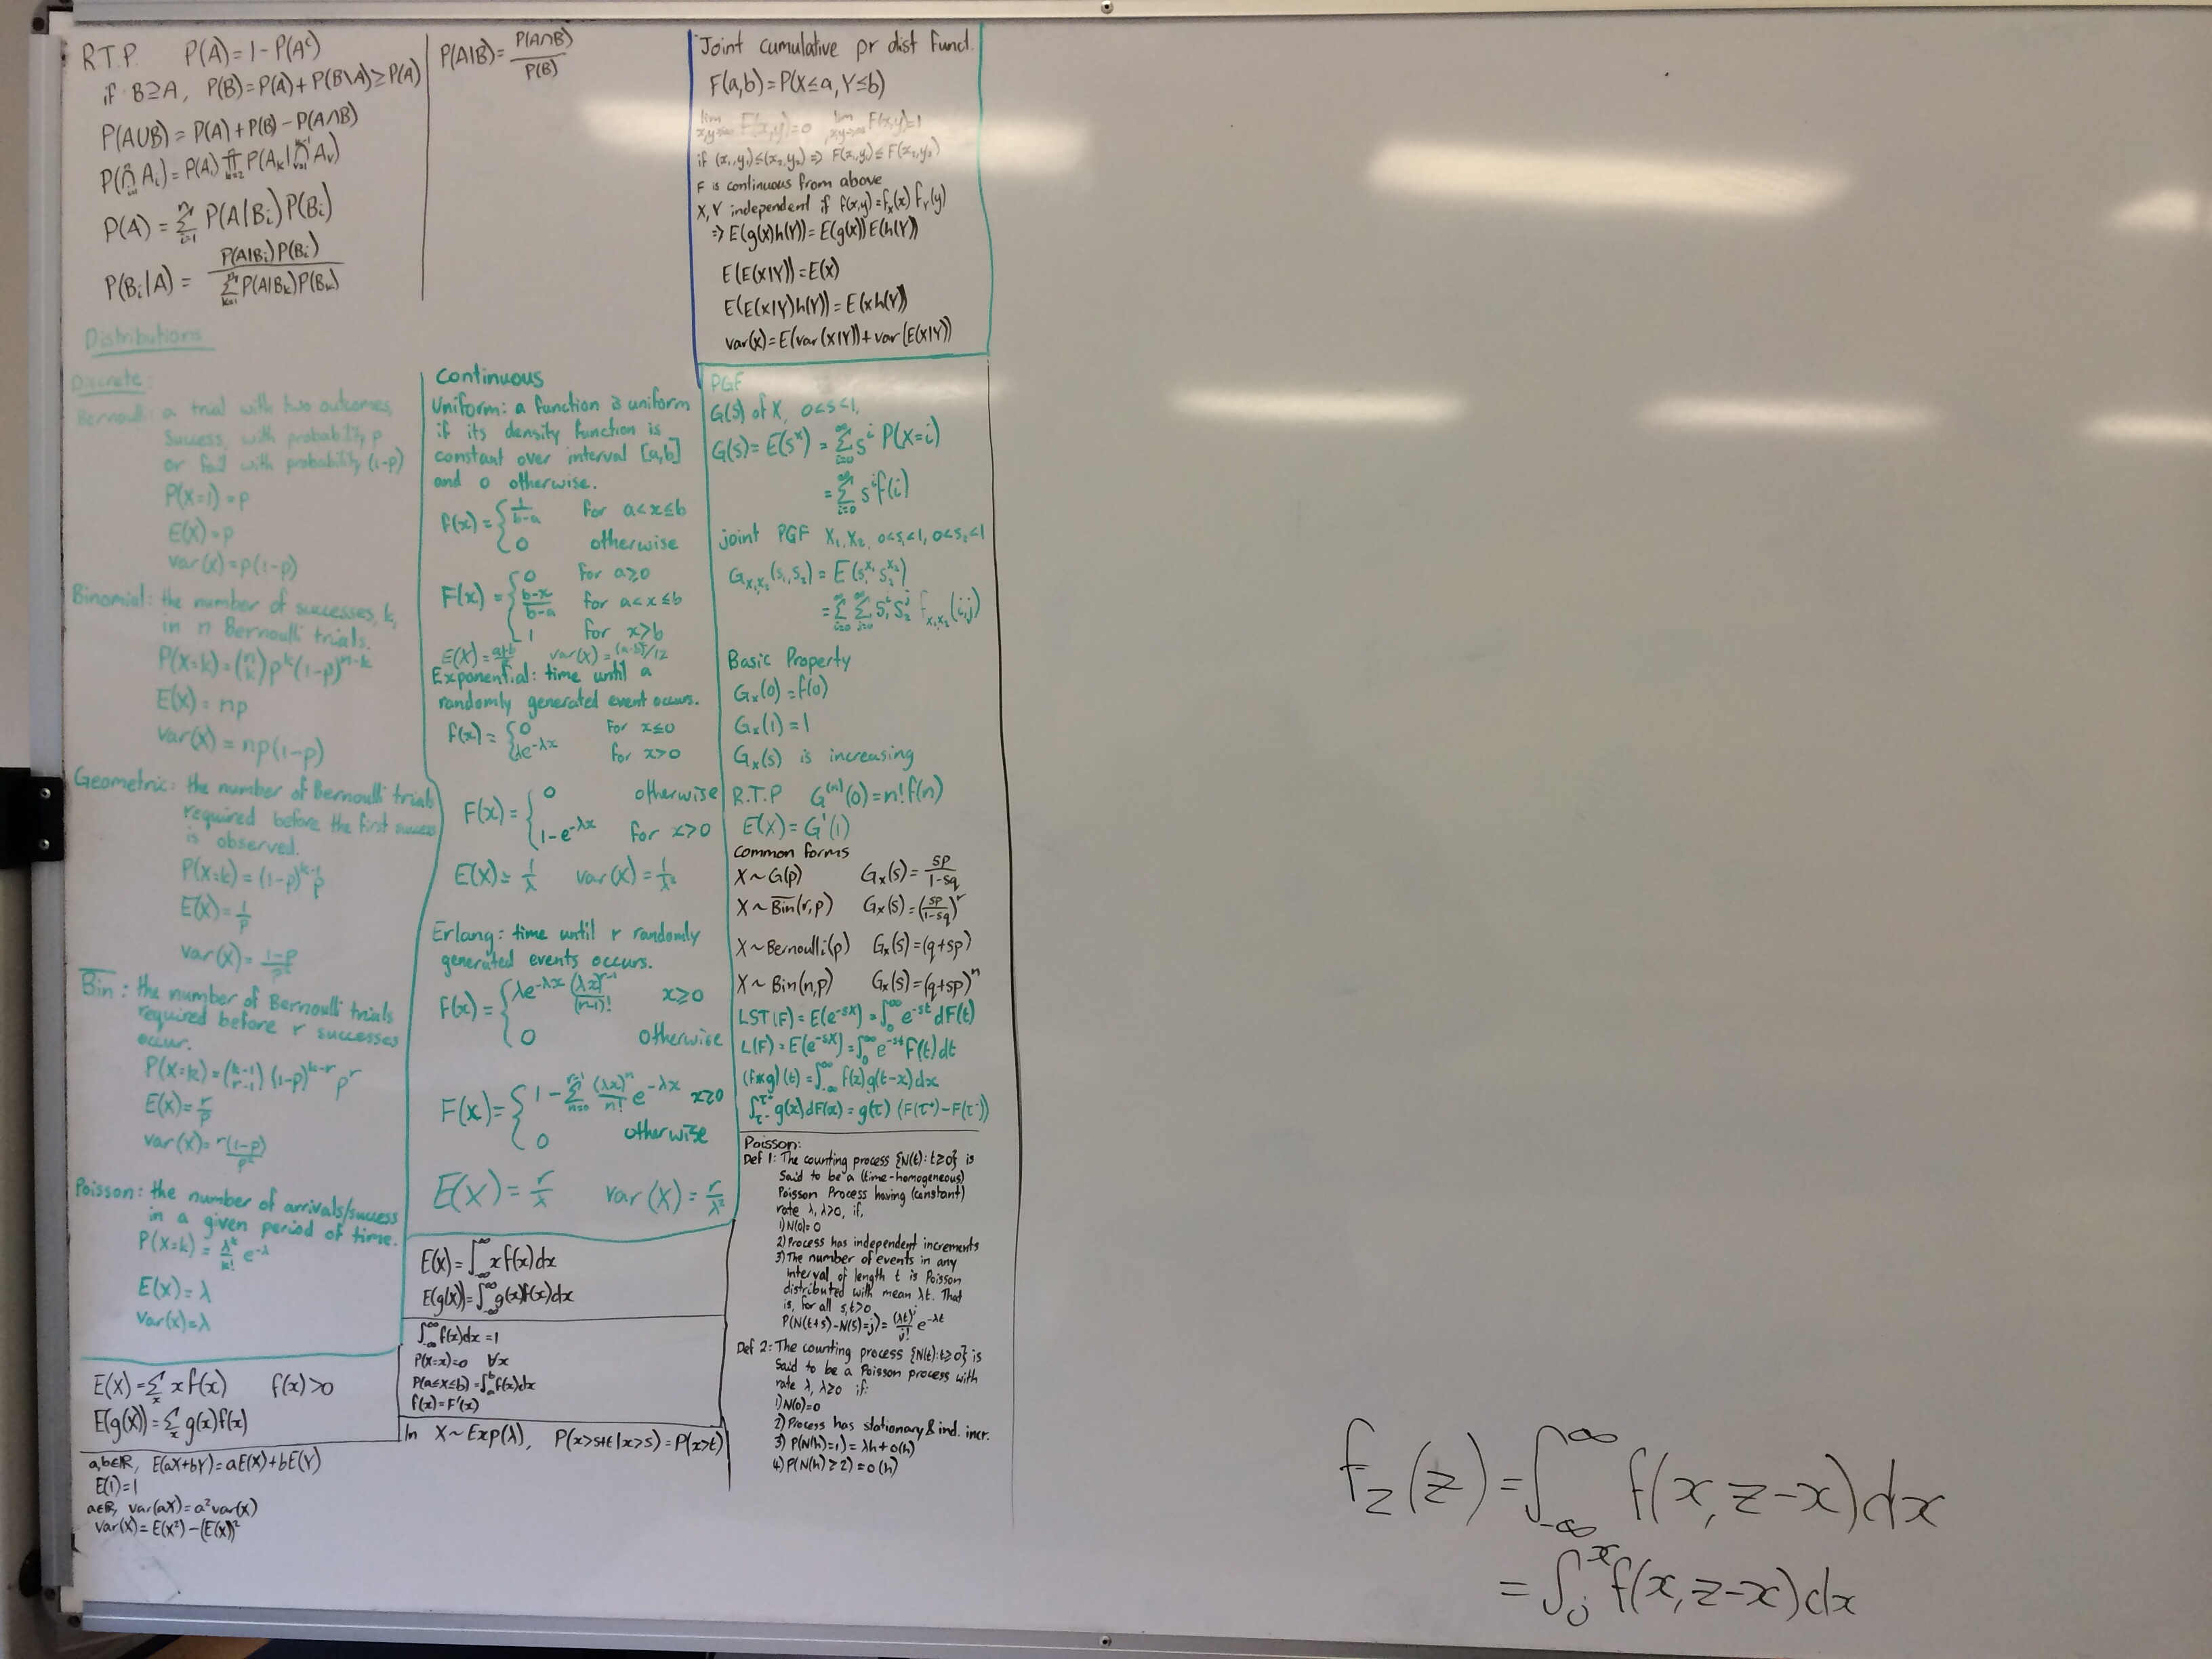 R.T.P. P(A)=1-P(Aᶜ)
if B⊇A, P(B)=P(A)+P(B\A)≥P(A)
P(A∪B)=P(A)+P(B)-P(A∩B)
P(⋂ᵢ₌₁ⁿ Aᵢ)=P(A₁)∏ₖ₌₂ⁿ P(Aₖ|⋂ᵥ₌₁ᵏ⁻¹ Aᵥ)
P(A)=∑ᵢ₌₁ⁿ P(A|Bᵢ)P(Bᵢ)
P(Bᵢ|A)= P(A|Bᵢ)P(Bᵢ) / ∑ₖ₌₁ⁿ P(A|Bₖ)P(Bₖ)
P(A|B)= P(A∩B) / P(B)
Distributions
Discrete:
Bernoulli: a trial with two outcomes,
success, with probability p
or fail with probability (1-p)
P(X=1)=p
E(X)=p
var(X)=p(1-p)
Binomial: the number of successes, k,
in n Bernoulli trials.
P(X=k)=(n k)pᵏ(1-p)ⁿ⁻ᵏ
E(X)=np
var(X)=np(1-p)
Geometric: the number of Bernoulli trials
required before the first success
is observed.
P(X=k)=(1-p)ᵏ⁻¹p
E(X)=1/p
var(X)=(1-p)/p²
Bin: the number of Bernoulli trials
required before r successes
occur.
P(X=k)=(k-1 r-1)(1-p)ᵏ⁻ʳ pʳ
E(X)=r/p
var(X)=r(1-p)/p²
Poisson: the number of arrivals/success
in a given period of time.
P(X=k)=λᵏ/k! e^-λ
E(X)=λ
var(X)=λ
E(X)=∑ₓ x f(x) f(x)>0
E(g(X))=∑ₓ g(x)f(x)
a,b∈ℝ, E(aX+bY)=aE(X)+bE(Y)
E(1)=1
a∈ℝ, var(aX)=a²var(X)
var(X)=E(X²)-(E(X))²
Continuous
Uniform: a function is uniform
if its density function is
constant over interval [a,b]
and 0 otherwise.
f(x)={ 1/(b-a) for a<x≤b
0 otherwise
F(x)={ 0 for a≥0
(b-x)/(b-a) for a<x≤b
1 for x>b
E(X)=(a+b)/2 var(X)=(a-b)²/12
Exponential: time until a
randomly generated event occurs.
f(x)={ 0 for x≤0
λe^-λx for x>0
F(x)={ 0 otherwise
1-e^-λx for x>0
E(X)=1/λ var(X)=1/λ²
Erlang: time until r randomly
generated events occurs.
f(x)={ λe^-λx (λx)ʳ⁻¹/(r-1)! x≥0
0 otherwise
F(x)={ 1-∑ₙ₌₀ʳ⁻¹ (λx)ⁿ/n! e^-λx x≥0
0 otherwise
E(X)=r/λ var(X)=r/λ²
E(X)=∫_-∞^∞ x f(x)dx
E(g(X))=∫_-∞^∞ g(x)f(x)dx
∫_-∞^∞ f(x)dx=1
P(X=x)=0 ∀x
P(a≤X≤b)=∫ₐᵇ f(x)dx
f(x)=F'(x)
In X~Exp(λ), P(x>s+t|x>s)=P(x>t)
Joint cumulative pr dist funct.
F(a,b)=P(X≤a,Y≤b)
lim x,y→-∞ F(x,y)=0 lim x,y→∞ F(x,y)=1
if (x₁,y₁)≤(x₂,y₂) ⇒ F(x₁,y₁)≤F(x₂,y₂)
F is continuous from above
X,Y independent if f(x,y)=fₓ(x) f_Y(y)
⇒E(g(X)h(Y))=E(g(X))E(h(Y))
E(E(X|Y))=E(X)
E(E(X|Y)h(Y))=E(Xh(Y))
var(X)=E(var(X|Y))+var(E(X|Y))
PGF
G(s) of X, 0<s<1,
G(s)=E(sˣ)=∑ᵢ₌₀^∞ sⁱ P(X=i)
=∑ᵢ₌₀^∞ sⁱf(i)
joint PGF X₁,X₂, 0<s₁<1, 0<s₂<1
G_X₁X₂(s₁,s₂)=E(s₁^X₁ s₂^X₂)
=∑ᵢ₌₀^∞ ∑ⱼ₌₀^∞ s₁ⁱ s₂ʲ f_X₁X₂(i,j)
Basic Property
Gₓ(0)=f(0)
Gₓ(1)=1
Gₓ(s) is increasing
R.T.P G⁽ⁿ⁾(0)=n!f(n)
E(X)=G'(1)
Common forms
X~G(p) Gₓ(s)=sp/(1-sq)
X~Bin(r,p) Gₓ(s)=(sp/(1-sq))ʳ
X~Bernoulli(p) Gₓ(s)=(q+sp)
X~Bin(n,p) Gₓ(s)=(q+sp)ⁿ
LST(F)=E(e^-sX)=∫₀^∞ e^-st dF(t)
L(F)=E(e^-sX)=∫₀^∞ e^-st f(t)dt
(f*g)(t)=∫_-∞^∞ f(x)g(t-x)dx
∫_τ⁻^τ⁺ g(x)dF(x)=g(τ)(F(τ⁺)-F(τ⁻))
Poisson:
Def 1: The counting process {N(t):t≥0} is
said to be a (time-homogeneous)
Poisson Process having (constant)
rate λ, λ>0, if,
1)N(0)=0
2)Process has independent increments
3)The number of events in any
interval of length t is Poisson
distributed with mean λt. That
is, for all s,t>0
P(N(t+s)-N(s)=j)=(λt)ʲ/j! e^-λt
Def 2: The counting process {N(t):t≥0} is
said to be a Poisson process with
rate λ, λ≥0 if:
1)N(0)=0
2)Process has stationary & ind. incr.
3) P(N(h)=1)=λh+o(h)
4)P(N(h)≥2)=o(h)
f_Z(z)=∫_-∞^∞ f(x,z-x)dx
=∫₀ˣ f(x,z-x)dx